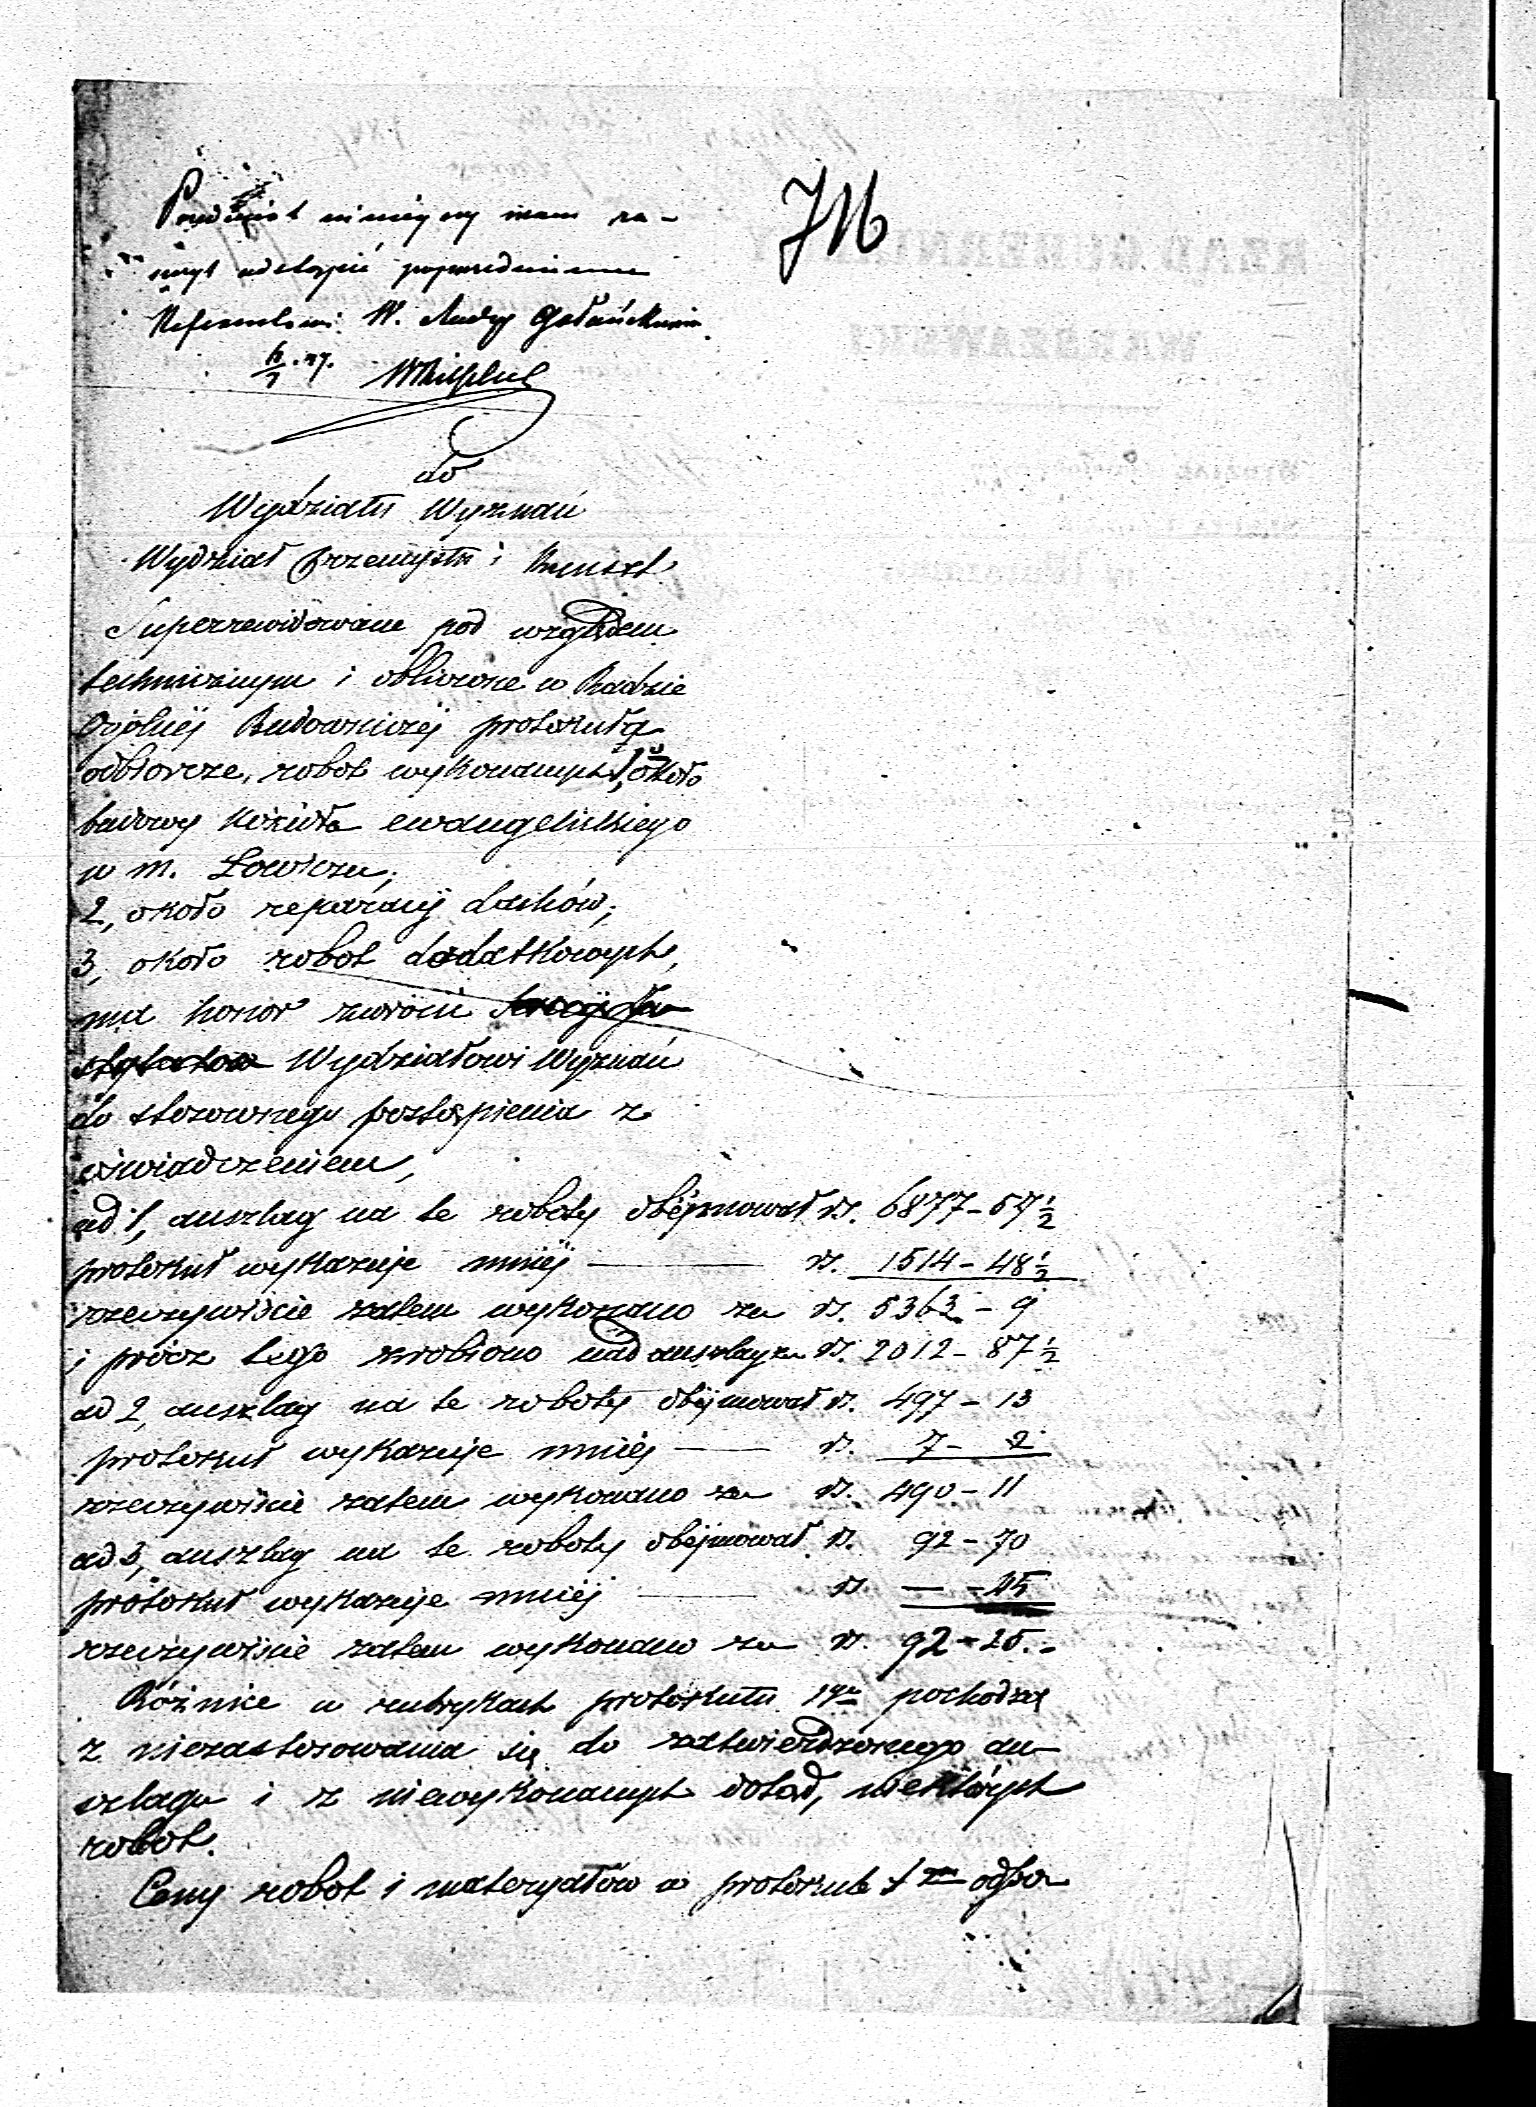 Przedmiot niniejszy mam za-
szczyt odstąpić poprzedniemu
Referentowi W. Radcy
do
Wydziału Wyznań
Wydział Przemysłu i Kunszt.
Superrewidowane pod względem
technicznym i obliczone w Radzie
Ogólnéj Budowniczéj protokuła
odbiorcze, robot wykonanych 1, około
budowy Kościoła ewangelickiego
w m. Łowiczu;
2, około reparacyi dachów;
3, około robot dodatkowych,
ma honor zwrócić
Wydziałowi Wyznań
do stosownego postąpienia z
oświadczeniem,
ad 1, auszlag na te roboty obéjmował rs. 6877-57½
protokuł wykazuje mniéj — rs. 1514-48½
rzeczywiście zatem wykonano za rs. 5363-9
i prócz tego zrobiono nad auszlag za rs. 2012-87½
ad 2, auszlag na te roboty obéjmował rs. 497-13
protokuł wykazuje mniéj — rs. 7-2
rzeczywiście zatem wykonano za rs. 490-11
ad 3, auszlag na te roboty obéjmował rs. 92-70
protokuł wykazuje mniéj — rs. — -45
rzeczywiście zatem wykonano za rs. 92-25.-
Różnice w rubrykach protokułu 1go pochodzą
z niezastosowania się do zatwierdzonego au-
szlagu i z niewykonanych dotąd, niektórych
robot.
Ceny robot i materyałów w protokule 1m odpo